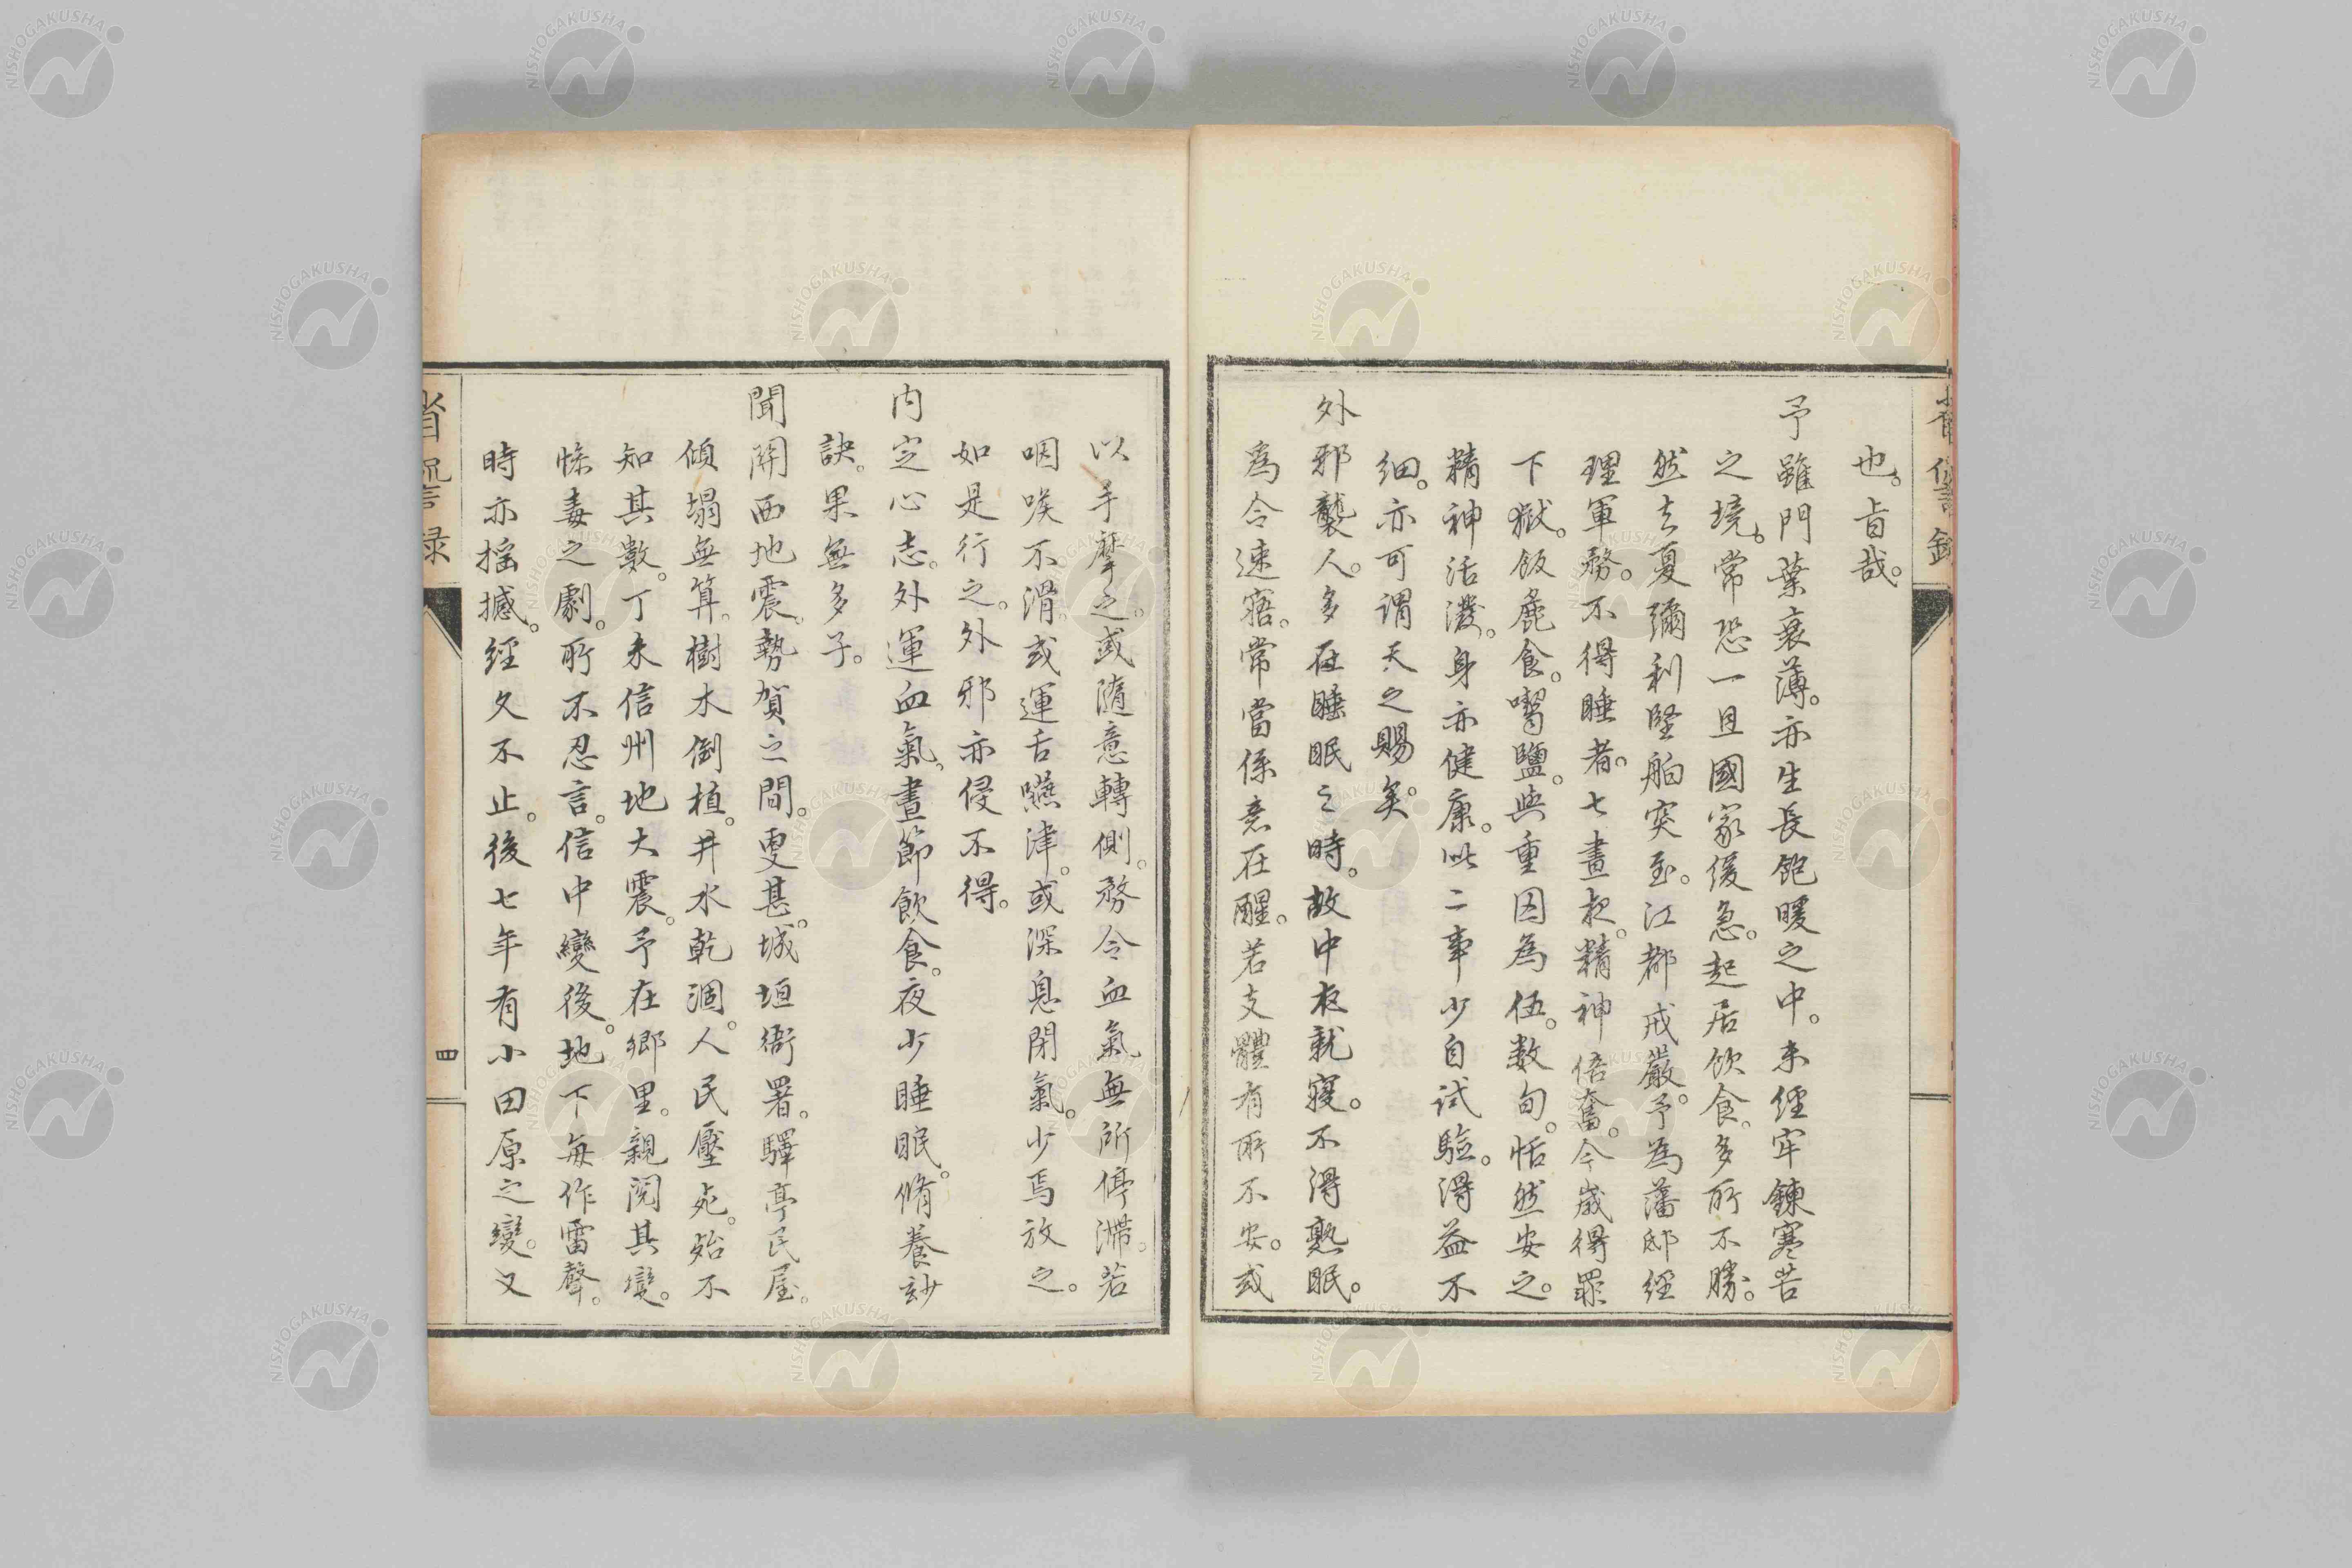 也。旨哉。
予雖門葉衰薄。亦生長飽暖之中。未經牢鍊寒苦
之境。常恐一旦國家緩急。起居飲食。多所不勝。
然去夏彌利堅舶突至。江都戒嚴。予為藩邸經
理軍務。不得睡者。七晝夜。精神倍奮。今歲得罪
下獄。飯麁食。喫鹽。與重囚為伍。数旬。恬然安之。
精神活潑。身亦健康。此二事少自試驗。得益不
細。亦可謂天之賜矣。
外邪襲人。多在睡眠之時。故中夜就寢。不得熟眠。
為令速寤。常當係意在醒。若支體有所不安。或
以手摩之。或隨意轉側。務令血氣無所停滯。若
咽喉不滑。或運舌嚥津。或深息閉氣。少焉放之。
如是行之。外邪亦侵不得。
内定心志。外運血氣。晝節飲食。夜少睡眠。脩養玅
訣。果無多子。
聞關西地震。勢賀之間。更甚。城垣衙署。驛亭民屋。
傾塌無算。樹木倒植。井水乾涸。人民壓死。殆不
知其數。丁未信州地大震。予在鄉里。親閱其變。
慘毒之劇。所不忍言。信中變後。地下每作雷聲。
時亦搖撼。經久不止。後七年有小田原之變。又
省諐録
四
省諐録
NISHOGAKUSHA